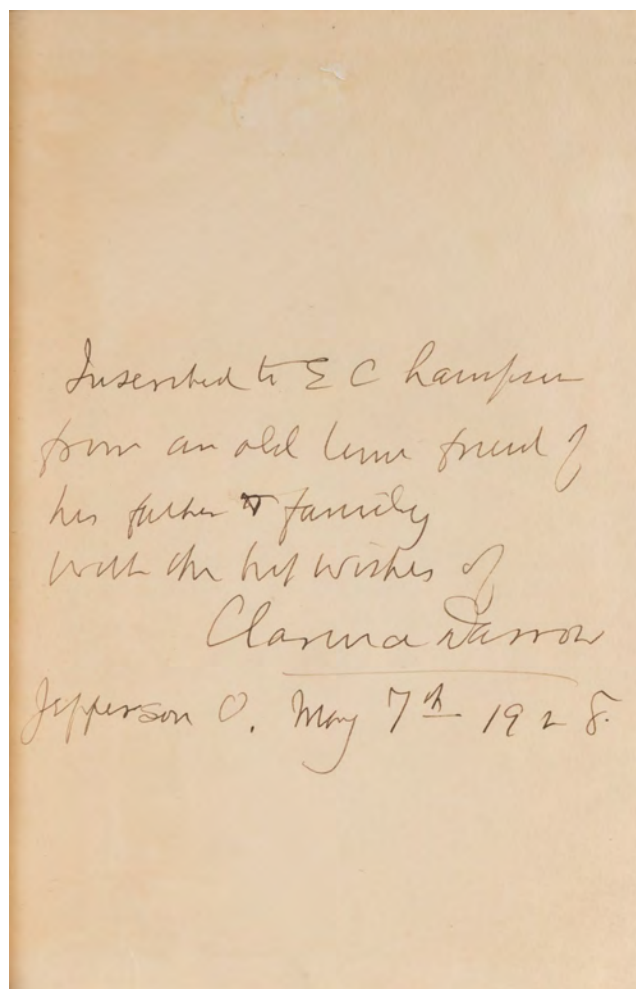 Inscribed to E C Lampson
from an old time friend of
his father & family
with the best wishes of
Clarence Darrow
Jefferson O. May 7th 1928.